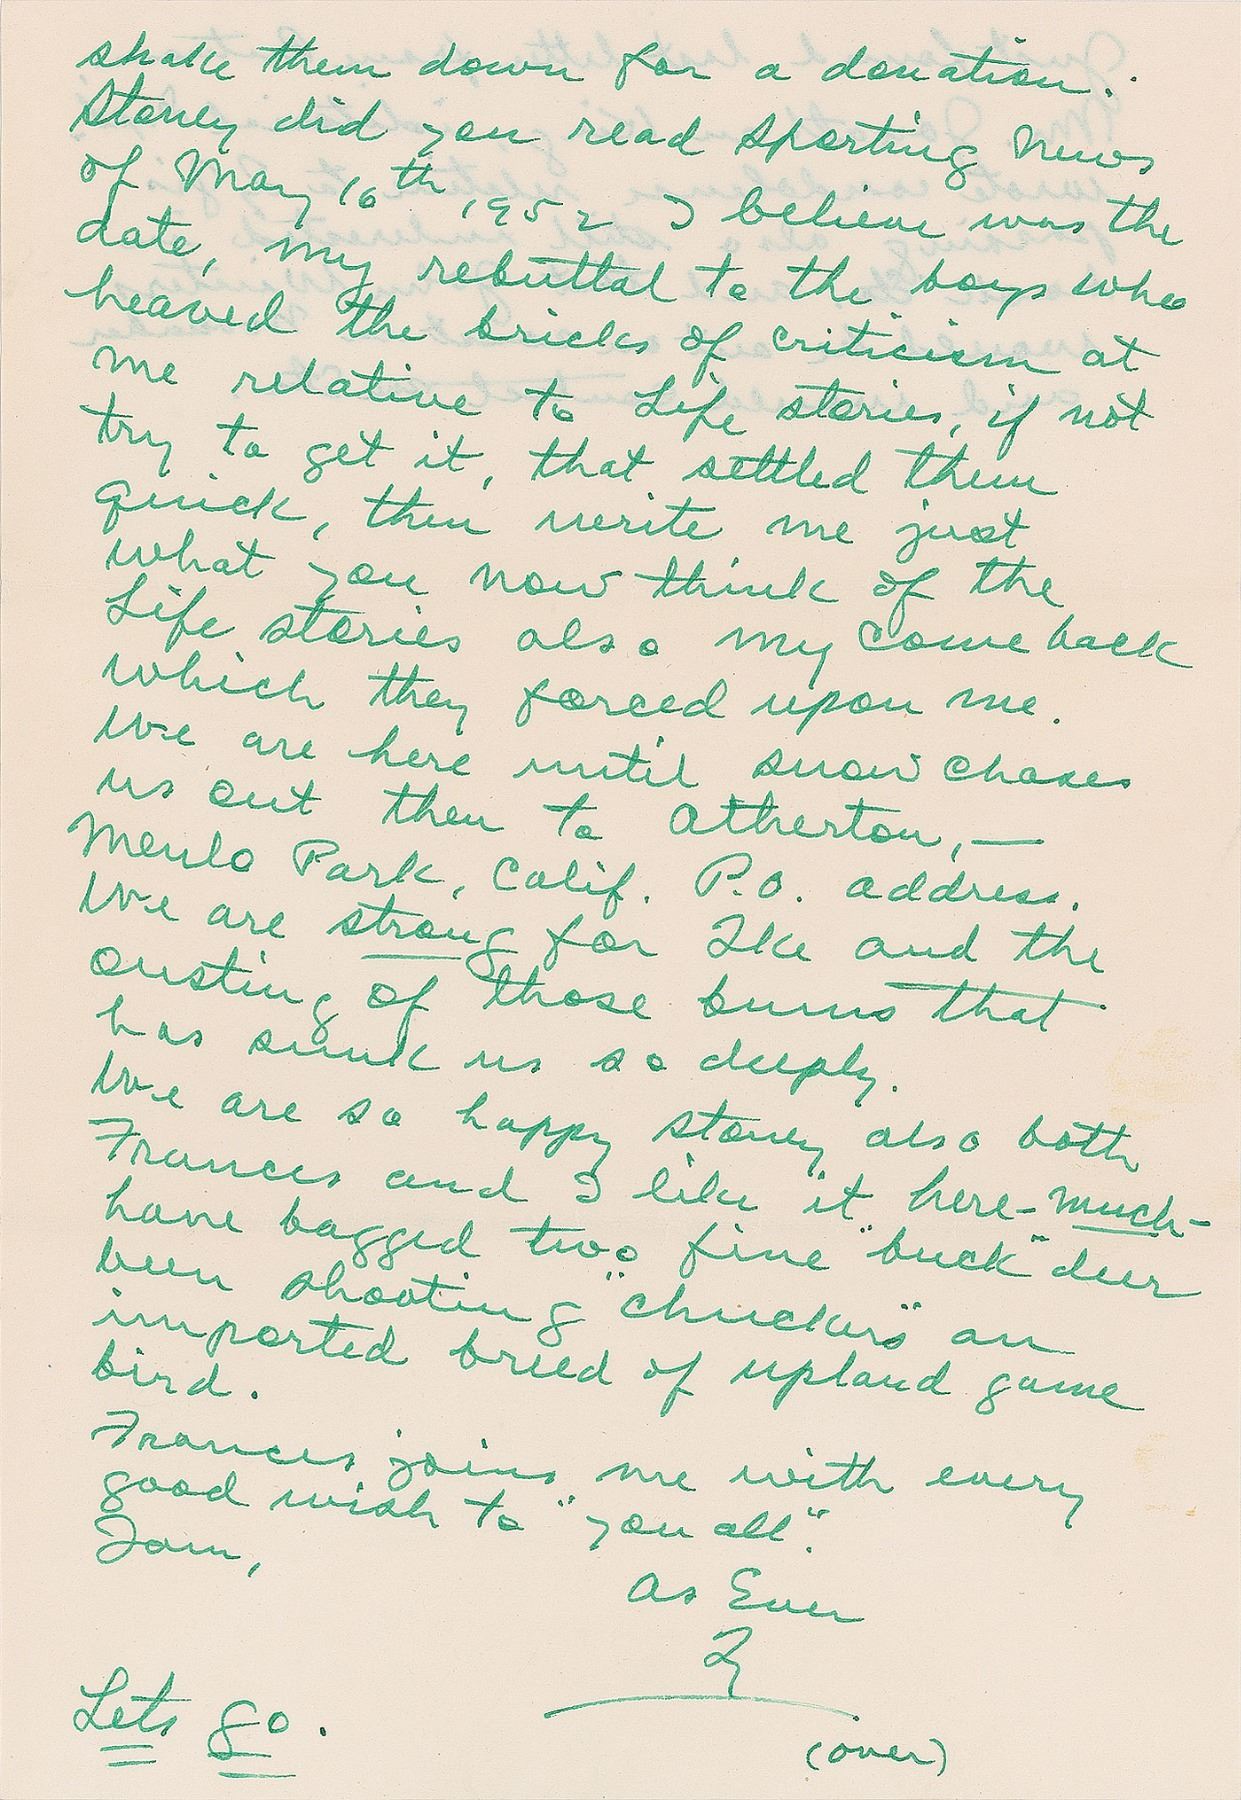 shake them down for a donation.
Stoney did you read Sporting News
of May 16th, 1952 I believe was the
date, my rebuttal to the boys who
heaved the bricks of criticism at
me relative to Life stories, if not
try to get it, that settled them
quick, then write me just
what you now think of the
Life stories also my come back
which they forced upon me.
We are here until snow chases
us out then to Atherton, —
Menlo Park, Calif. P.O. address.
We are strong for Ike and the
ousting of those bums that
has sunk us so deeply.
We are so happy Stoney also both
Frances and I like it here - much -
have bagged two fine "buck" deer
been shooting "chuckars" an
imported breed of upland game
bird.
Frances joins me with every
good wish to "you all".
Tom,
As Ever
Ty
Lets go.
(over)